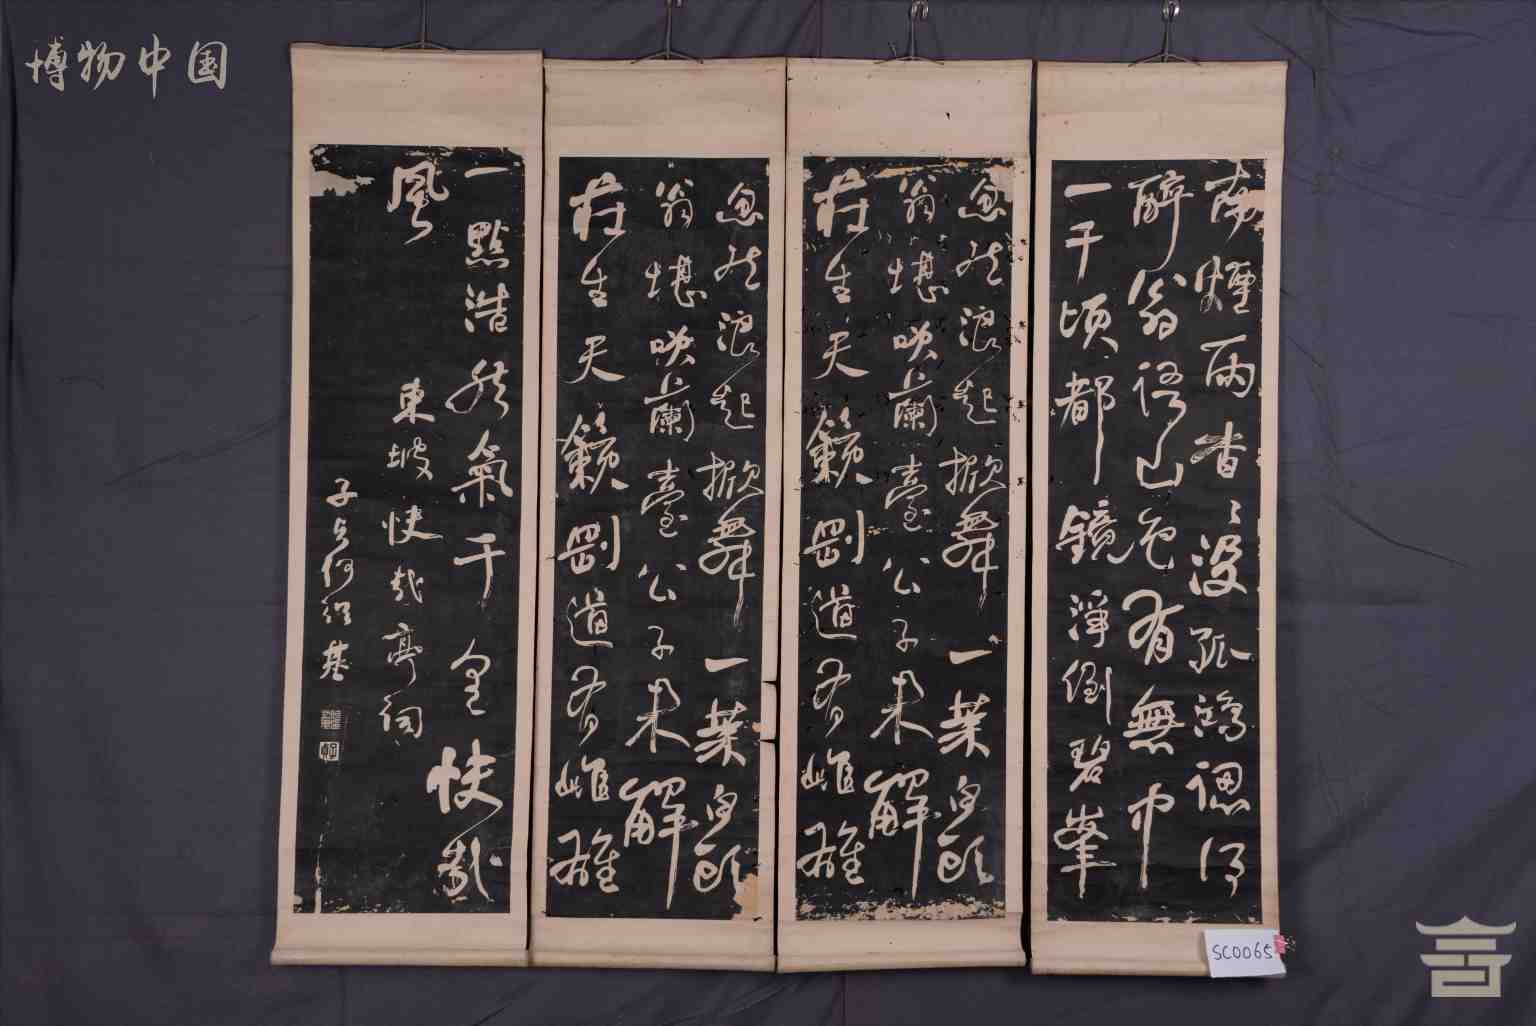 博物中国
南煙雨杳〻没孤鴻認得
醉翁語山色有無中
一千頃都鏡淨倒碧峯
忽然浪起掀舞一葉白頭
翁堪咲蘭臺公子未解
莊生天籟剛道有雌雄
忽然浪起掀舞一葉白頭
翁堪咲蘭臺公子未解
莊生天籟剛道有雌雄
一點浩然氣千里快哉
風
東坡快哉亭詞
子貞何紹基
SC0065